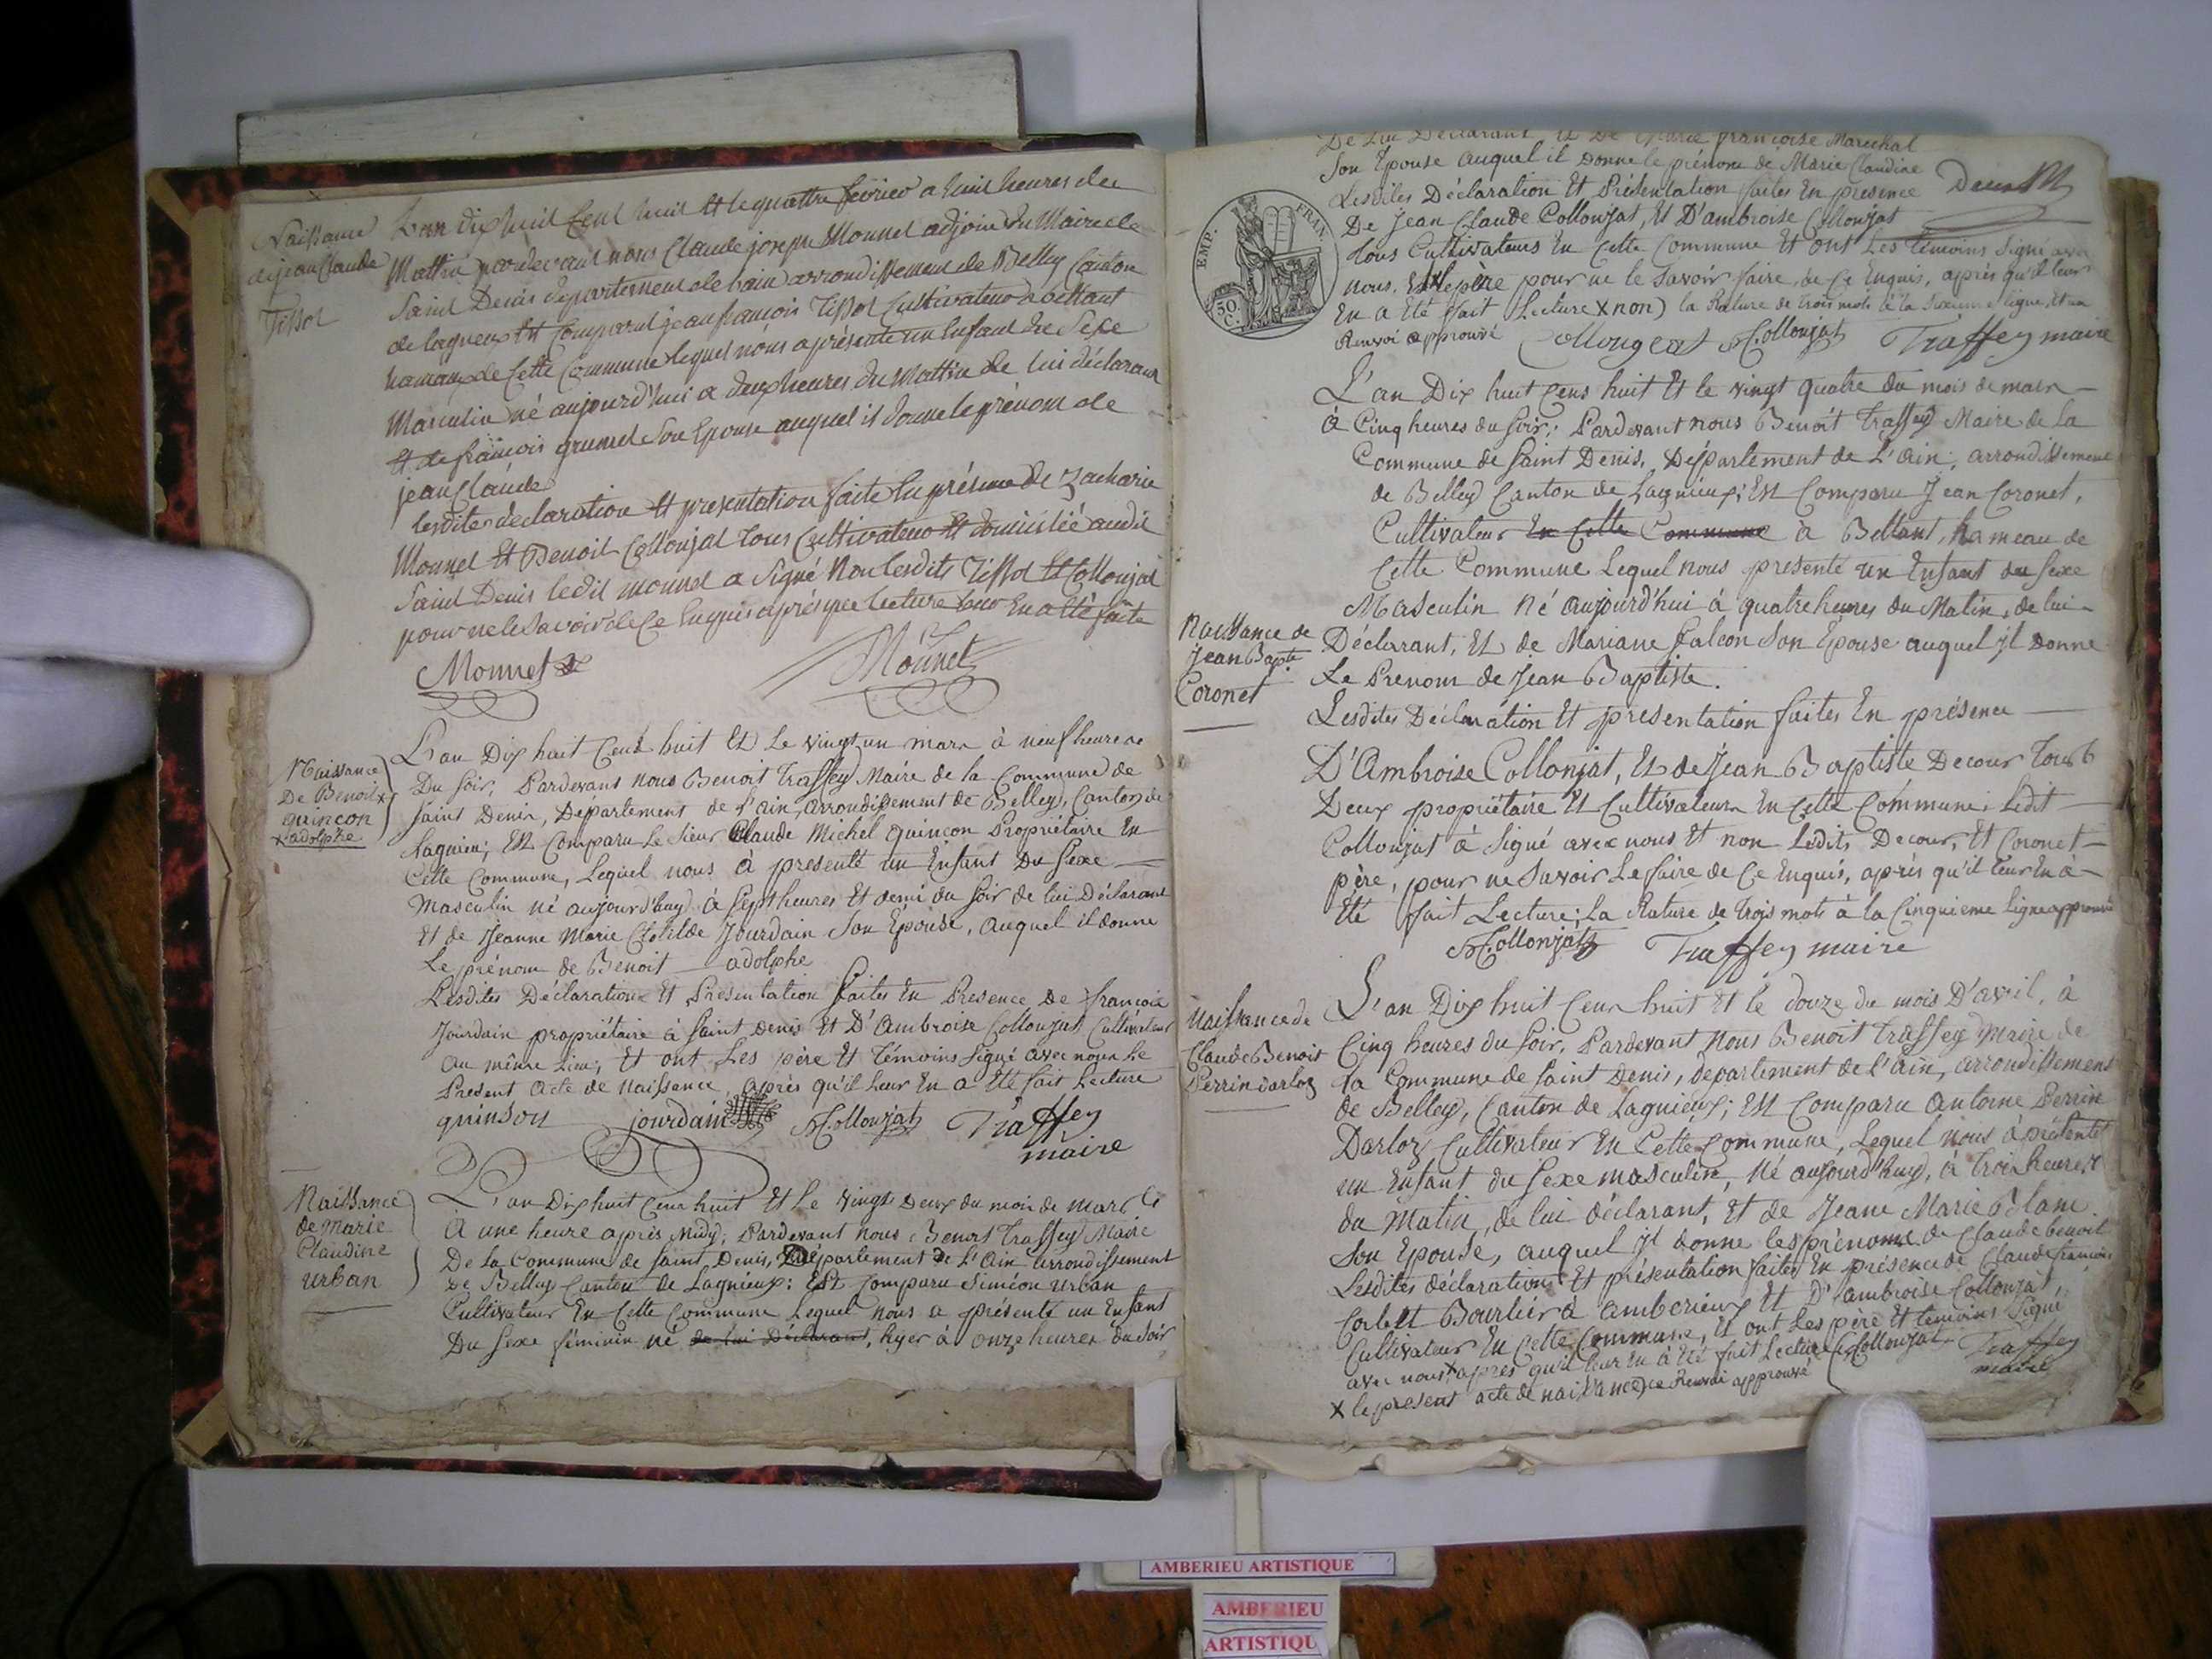 Naissance
de jean Claude
Tissot
L'an dix huit Cent huit Et le quattre février a huit heures du
Mattin pardevant nous Claude joseph Monnet adjoin du Maire de
Saint Denis departement de lain arrondissement de Belley Canton
de lagneux Est Comparut jean françois Tissot Cultivateur a bettant
hamaux de Cette Commune lequel nous a présenté un Enfant de Sexe
Masculin né aujourd'hui a deux heures du Mattin de lui déclarant
Et de françois grumel Son Epouse auquel il donne le prénom de
jean Claude
lesdites déclaration Et presentation faite En présence de Zacharie
Monnet Et Benoit Collonjat tous Cultivateur Et domicilié audit
Saint Denis ledit monnet a Signé Non lesdits Tissot Et Collonjat
pour ne le Savoir de Ce Enquis après que lecture leur En a Eté faite
Monnet
Monnet
Naissance
De Benoit x
quincon
x adolphe
L'an Dix huit Cens huit Et Le vingt un mars à neuf heures
Du Soir, Pardevant nous Benoit Traffey Maire de la Commune de
Saint Denis, Département de l'ain, arrondissement de Belley, Canton de
Lagnieu; Est Comparu Le Sieur Claude Michel quincon Propriétaire En
Cette Commune, Lequel nous à presenté un Enfant Du Sexe
Masculin né aujourd'huy à Sept heures Et demi du Soir de lui Déclarant
Et de Jeanne Marie Clotilde Jourdain Son Epouse, auquel il donne
Le prénom de Benoit adolphe
Lesdites Déclaration Et Présentation faites En Presence de françois
Jourdain propriétaire à Saint Denis Et D'Ambroise Collonjat Cultivateur
au même Lieu, Et ont Les père Et Témoins Signé avec nous Le
Présent acte de naissance, après qu'il Leur En a Eté fait Lecture
quinson jourdain A Collonjat Traffey
maire
Naissance
de marie
Claudine
urban
L'an Dix huit Cens huit Et Le vingt Deux du mois de mars
A une heure après Midy, Pardevant nous Benoit Traffey Maire
De La Commune de Saint Denis, Département de L'Ain arrondissement
de Belley Canton de Lagnieux: Est Comparu Siméon urban
Cultivateur En Cette Commune Lequel nous a présenté un Enfant
Du Sexe féminin né de lui Déclarant, hyer à onze heures du Soir
De Lui Déclarant, Et De Marie françoise Maréchal
Son Epouse auquel il donne le prénom de Marie Claudine
Lesdites Déclaration Et Présentation faites En présence
De Jean Claude Collonjat, Et D'ambroise Collonjat
tous Cultivateurs En Cette Commune Et ont Les témoins Signé avec
nous. Et le père pour ne le Savoir faire, de Ce Enquis, après qu'il leur
En a Eté fait Lecture x non) la Rature de trois mots à la Sixieme ligne, Et un
Renvoi approuvé Collongeat A Collonjat Traffey maire
EMP. FRAN.
50.
C.
Naissance de
Jean Bapte
Coronet
L'an Dix huit Cens huit Et le vingt quatre du mois de mars
à Cinq heures du Soir: Pardevant nous Benoit Traffey Maire de La
Commune de Saint Denis, Département de L'Ain, arrondissement
de Belley Canton de Lagnieux; Est Comparu Jean Coronet,
Cultivateur En Cette Commune à Bettant, hameau de
Cette Commune Lequel nous presenté un Enfant du Sexe
Masculin Né aujourd'hui à quatre heures du Matin, de lui
Déclarant, Et de Mariane falcon Son Epouse auquel Jl donne
Le Prenom de Jean Baptiste.
Lesdites Déclaration Et presentation faites En présence
D'Ambroise Collonjat, Et de Jean Baptiste Decour Tous
Deux propriétaire Et Cultivateurs En Cette Commune, Ledit
Collonjat à Signé avec nous Et non Ledits Decour, Et Coronet
père, pour ne Savoir Le faire de Ce Enquis, après qu'il leur En à
Eté fait Lecture; La Rature de Trois mots à la Cinquieme ligne approuvé
A Collonjat Traffey maire
Naissance de
Claude Benoit
Perrin darloz
L'an Dix huit Cens huit Et le douze du mois D'avril, à
Cinq heures du Soir, Pardevant Nous Benoit Traffey Maire de
la Commune de Saint Denis, département de l'Ain, arrondissement
de Belley, Canton de Lagnieux; Est Comparu Antoine Perrin
Darloz Cultivateur En Cette Commune, Lequel Nous à présenté
un Enfant du Sexe masculin, Né aujourd'huy, à trois heures
du Matin, de lui déclarant, Et de Jeane Marie Blanc
Son Epouse, auquel Jl donne les prénoms de Claude benoit
Lesdites déclaration Et présentation faites En présence de Claude françois
Corbet Bourlier à amberieux Et D'ambroise Collonjat,
Cultivateur En Cette Commune, Et ont Les père Et temoins Signé
avec nous x après qu'il leur En à Eté fait Lecture A Collonjat Traffey
x le present acte de naissance) Ce Renvoi approuvé maire
AMBERIEU ARTISTIQUE
AMBERIEU
ARTISTIQU